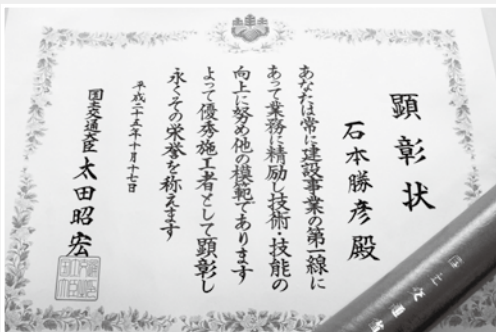 顕彰状
石本勝彦殿
あなたは常に建設事業の第一線に
あって業務に精励し技術・技能の
向上に努め他の模範であります
よって優秀施工者として顕彰し
永くその栄誉を称えます
平成二十五年十月十七日
国土交通大臣 太田昭宏
国土交通